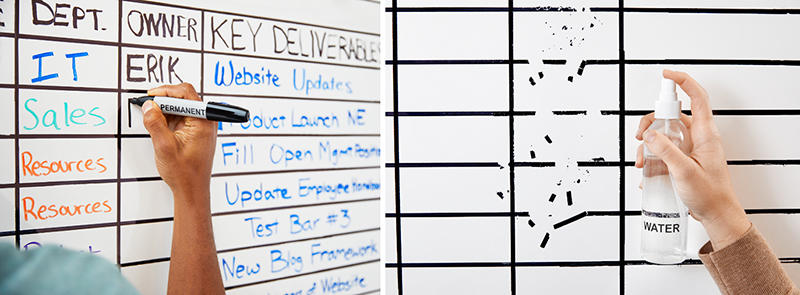 DEPT. OWNER KEY DELIVERABLES
IT ERIK Website Updates
Sales Product Launch NE
PERMANENT
Fill Open Mgmt Positions
Resources Update Employee Handbook
Resources Test Bar #3
New Blog Framework
of Website
WATER